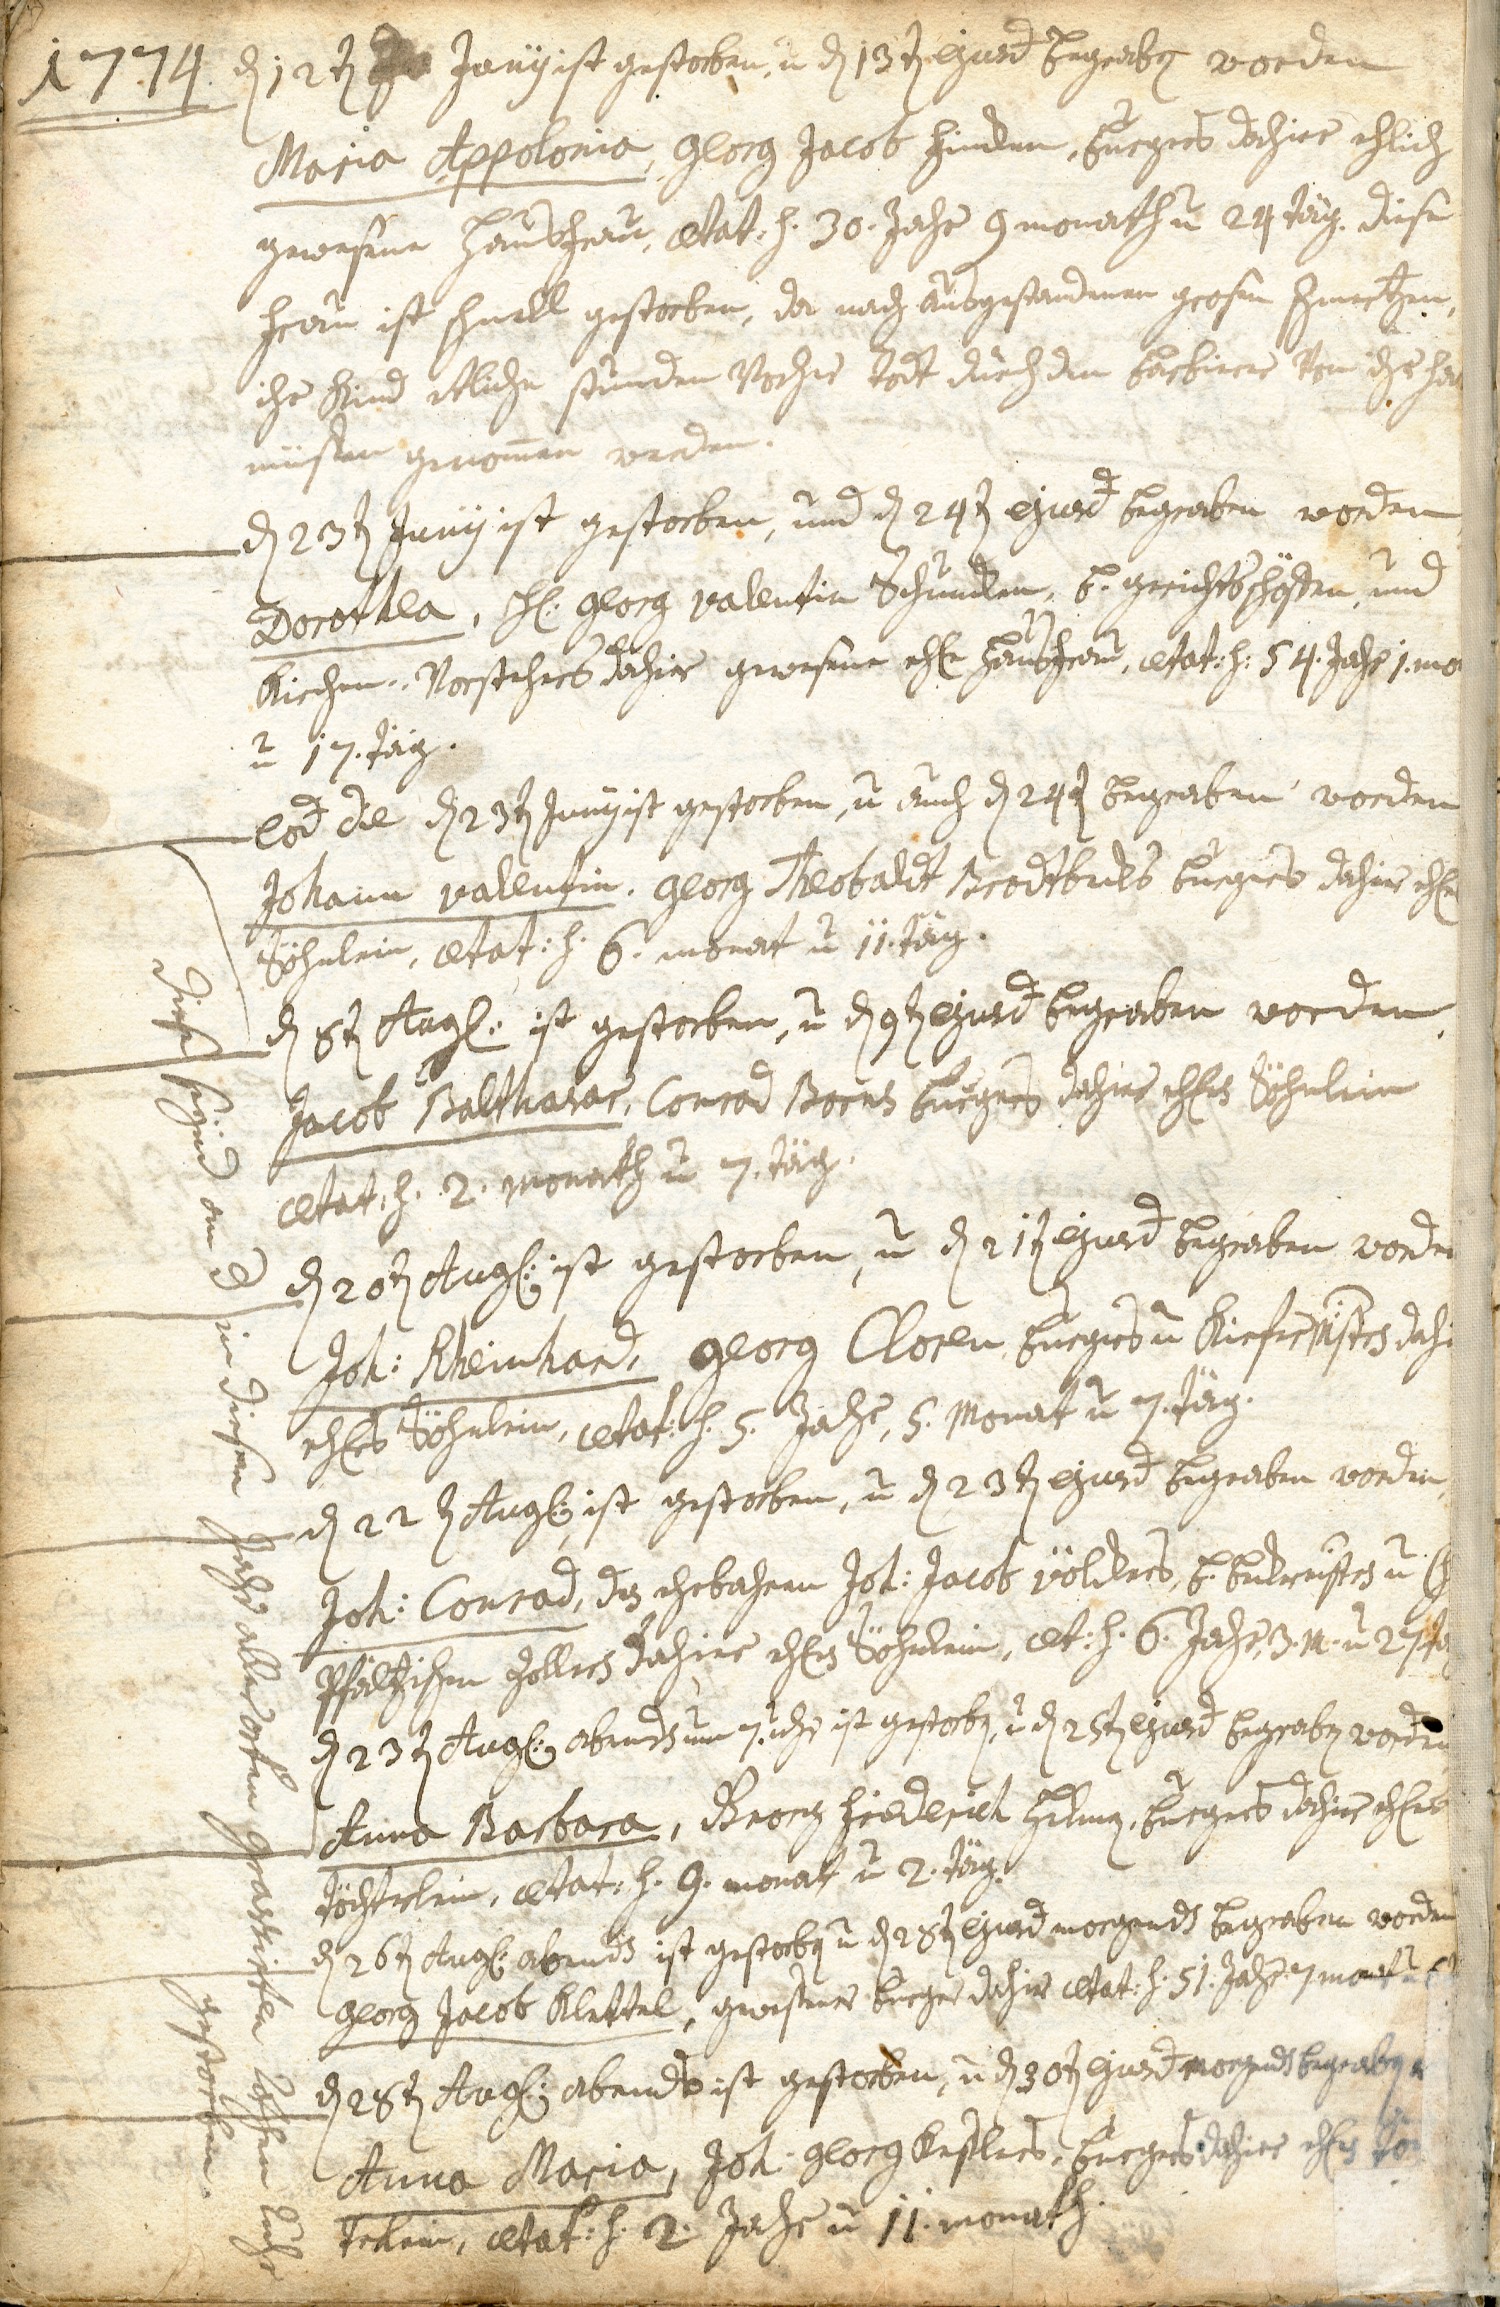 1774. d 12t Junÿ ist gestorben, u d 13t ejusd begraben worden
Maria Appolonia, Georg Jacob Finken, burgers dahier ehlich
gewesene Hausfrau, aetat: s. 30. Jahr 9 monath u 24 täg. diese
frau ist schnell gestorben, da nach ausgestandenen grosen schmertzen,
ihr Kind etliche stunden Vorher todt durch den barbierer Von ihr hat
müssen genomen werden.
d 23t Junÿ ist gestorben, und d 24t ejusd begraben worden
Dorothea, H: Georg Valentin Schunken, b. gerichtsschöffen, und
Kirchen-Vorstehers dahier gewesene ehl Hausfrau, aetat: s: 54. Jahr 1. mo
u 17. täg.
eod die d 23t Junÿ ist gestorben, u auch d 24t begraben worden
Johann Valentin. Georg Theobaldt Brodtbecks burgers dahier ehl
Söhnlein, aetat: s. 6. monat u 11. täg.
d 8t Aug: ist gestorben, u d 9t ejusd begraben worden.
Jacob Balthasar, Conrad burgers dahier ehls Söhnlein
aetat: s. 2. monath u 7. täg.
d 20t Aug: ist gestorben, u d 21t ejusd begraben worden
Joh: Rheinhard, Georg Closen, burgers u Kiefermstrs dahi
ehls Söhnlein, aetat: s. 5. Jahr, 5. Monat u 7. täg.
d 22t Aug: ist gestorben, u d 23t ejusd begraben worden,
Joh: Conrad, des ehrbahren Joh: Jacob Völckers, b. u Ch
Pfältzischen Zollers dahier ehls Söhnlein, aet: s. 6. Jahr, 3. M. u 27 tä
d 23t Aug: abends um 7. uhr ist gestorben, u d 25t ejusd begraben worden
Anna Barbara, Georg Friederich burgers dahier ehls
töchterlein, aetat: s. 9. monat u 2. täg.
d 26t Aug: abends ist gestorben u d 28t ejusd morgends begraben worden
Georg Jacob Klettel, gewesener burger dahier aetat: s: 51. Jahr 7 monat u
d 28t Aug: abends ist gestorben, u d 30t ejusd morgends begraben
Anna Maria, Joh. Georg Kesslers, burgers dahier ehls töch
terlein, aetat: s. 2. Jahr u 11. monath.
diese seÿnd an d in diesem Jahr aller orthen grassirten rothen Ruhr
gestorben.